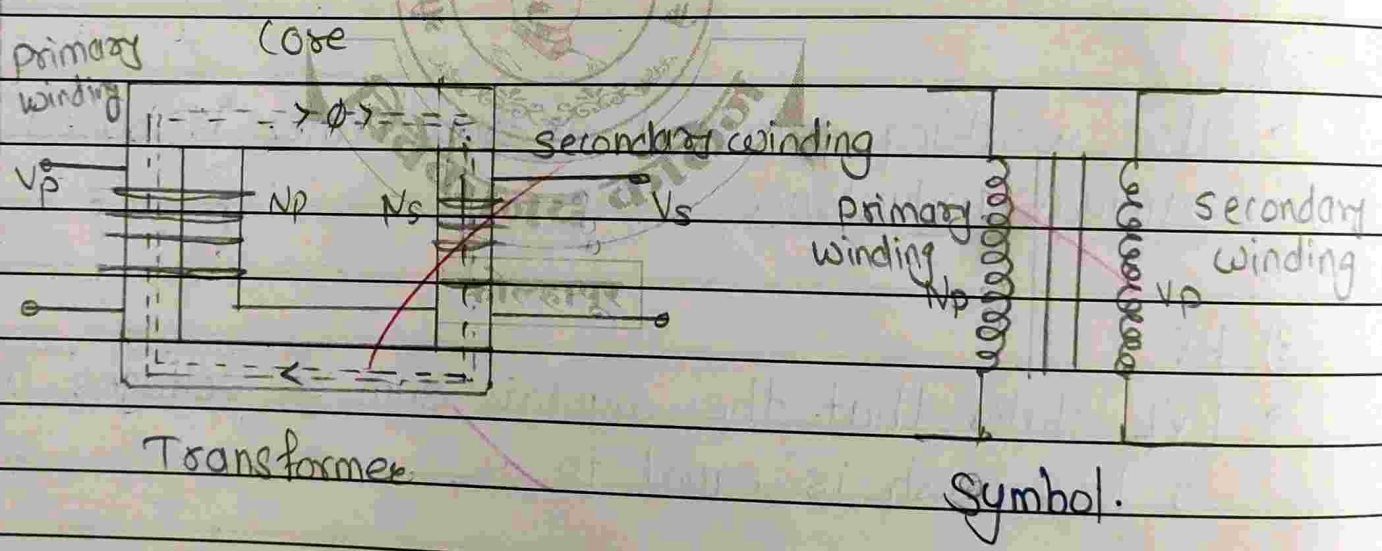 Core
primary
winding
> Φ >
secondary winding
Vp
Np
Ns
Vs
primary
winding
Np
secondary
winding
Vp
Transformer
Symbol.
कोल्हापूर